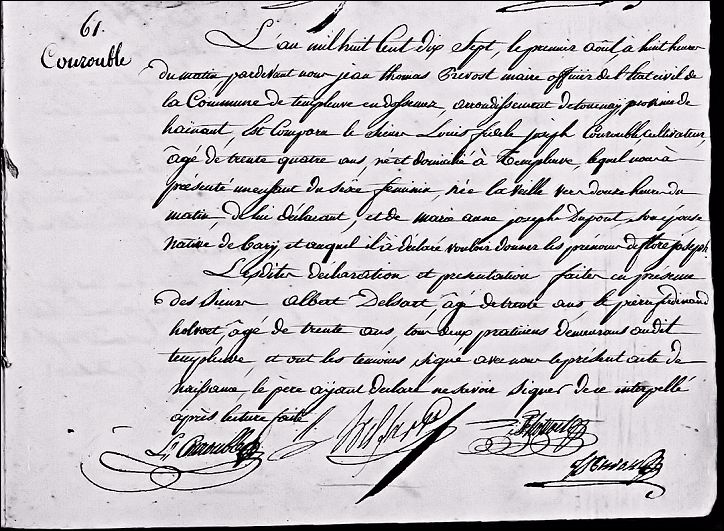 61.
Courouble
L'an mil huit Cent dix Sept, le premier août, à huit heures
du matin pardevant nous jean thomas Prevost maire officier de l'Etat civil de
la Commune de templeuve en dossemez, arrondissement de tournay, province de
hainaut, Est Comparu le sieur Louis fidele joseph Courouble, cultivateur,
âgé de trente quatre ans, né et domicilié à Templeuve, lequel nous à
présenté un enfant du sexe feminin, née la veille vers douze heures du
matin, de lui déclarant, et de marie anne joseph Dupont, son épouse
native de Cary, et auquel il à déclaré vouloir donner les prénoms de flore joseph.
Lesdites declaration et presentation faites en presence
des sieurs albert Delsart âgé de trente ans le ferdinand
holvoet, âgé de trente ans, tous deux praticiens demeurans audit
templeuve, et ont les temoins signé avec nous le présent acte de
naissance, le père ayant declaré ne savoir signer de ce interpellé
après lecture faite
L. Courouble
Delsart